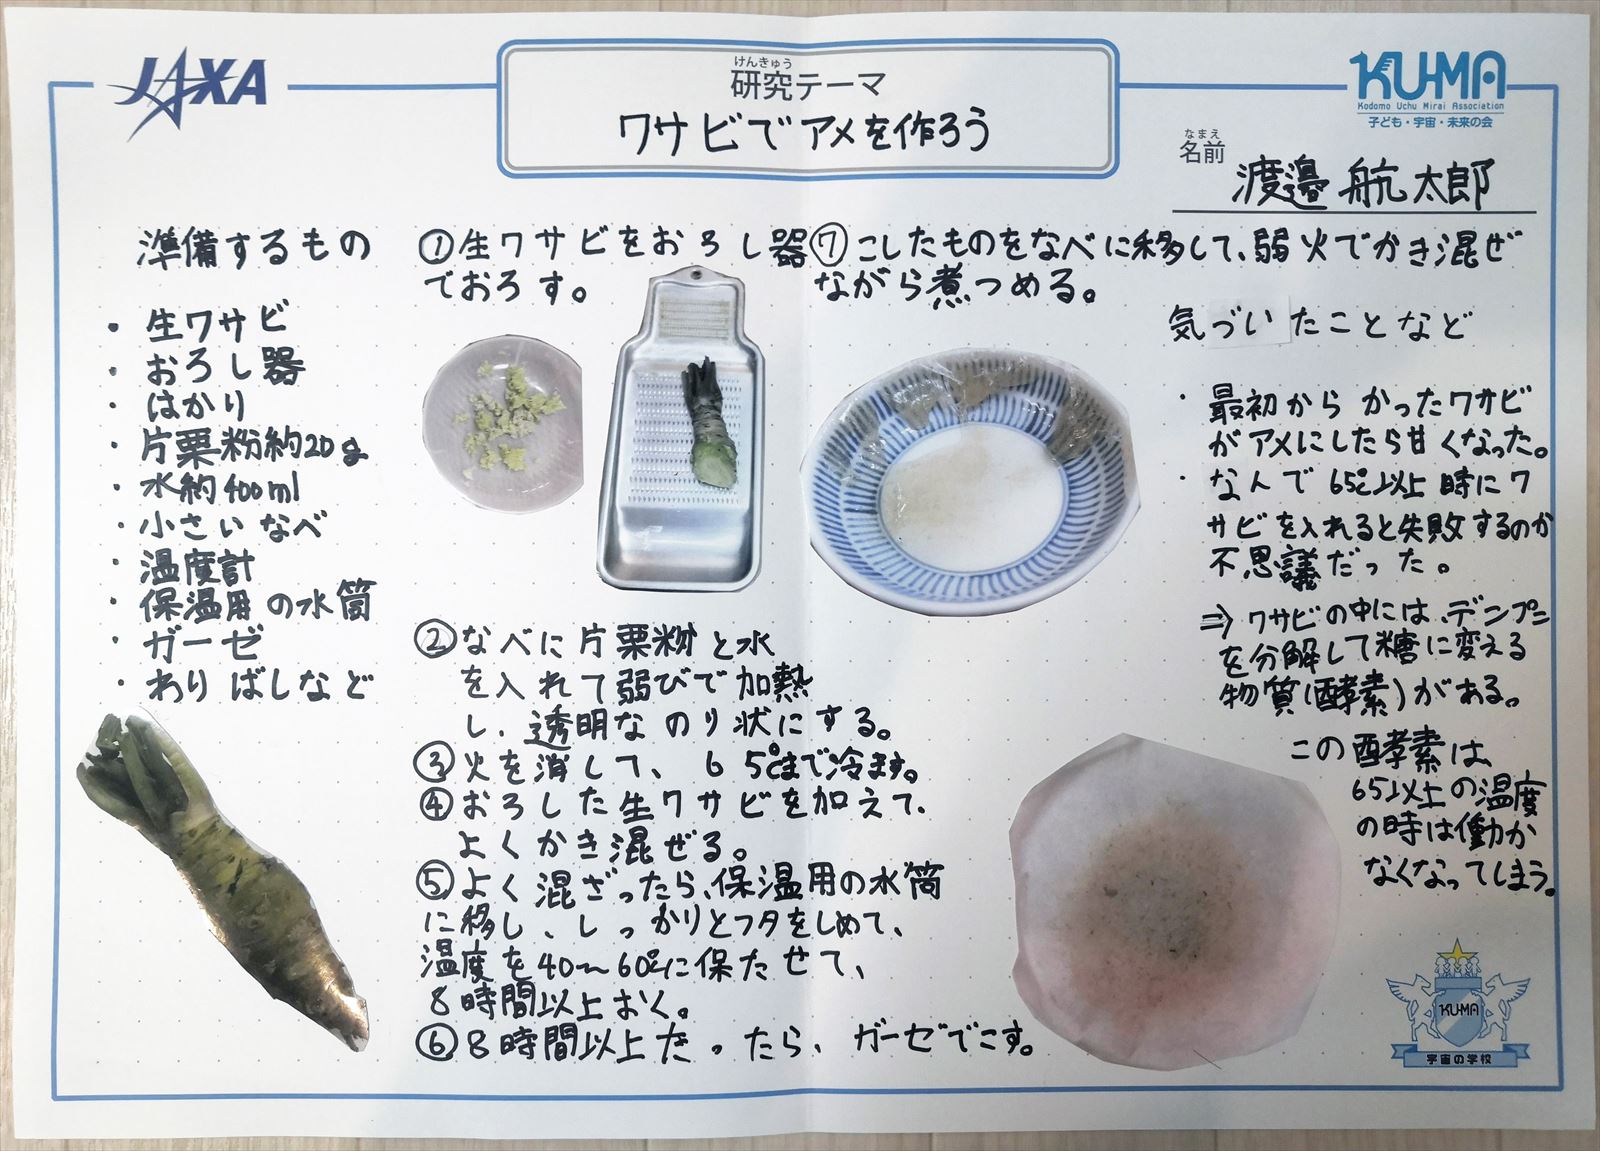 JAXA
けんきゅう
研究テーマ
ワサビでアメを作ろう
KU-MA
Kodomo Uchu Mirai Association
子ども・宇宙・未来の会
なまえ
名前
渡邉 航太郎
準備するもの
・生ワサビ
・おろし器
・はかり
・片栗粉約20g
・水約400ml
・小さいなべ
・温度計
・保温用の水筒
・ガーゼ
・わりばしなど
①生ワサビをおろし器
でおろす。
②なべに片栗粉と水
を入れて弱びで加熱
し、透明なのり状にする。
③火を消して、65℃まで冷ます。
④おろした生ワサビを加えて、
よくかき混ぜる。
⑤よく混ざったら、保温用の水筒
に移し、しっかりとフタをしめて、
温度を40〜60℃に保たせて、
8時間以上おく。
⑥8時間以上たったら、ガーゼでこす。
⑦こしたものをなべに移して、弱火でかき混ぜ
ながら煮つめる。
気づいたことなど
・最初からかったワサビ
がアメにしたら甘くなった。
・なんで65℃以上時にワ
サビを入れると失敗するのか
不思議だった。
⇒ワサビの中には、デンプン
を分解して糖に変える
物質(酵素)がある。
この酵素は、
65以上の温度
の時は働か
なくなってしまう。
KU-MA
宇宙の学校